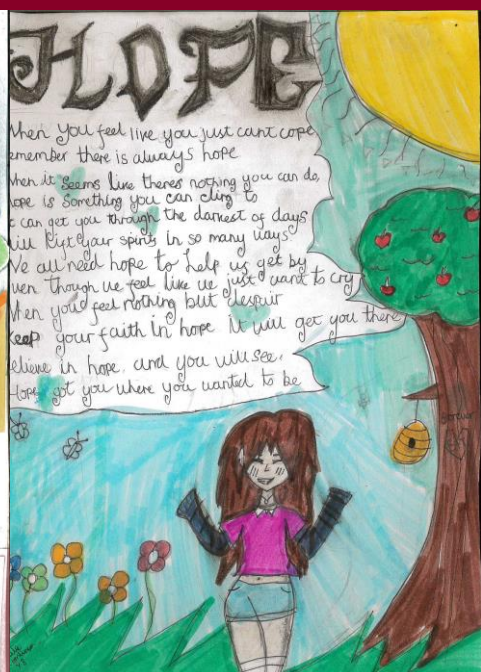 HOPE
When you feel live you just cant cope
remember there is always hope
when it seems like theres nothing you can do,
hope is something you can cling to
it can get you through the darkest of days
will lift your spirits in so many ways
We all need hope to help us get by
even though we feel like we just want to cry
When you feel nothing but despair
keep your faith in hope it will get you there
believe in hope, and you will see,
Hope got you where you wanted to be